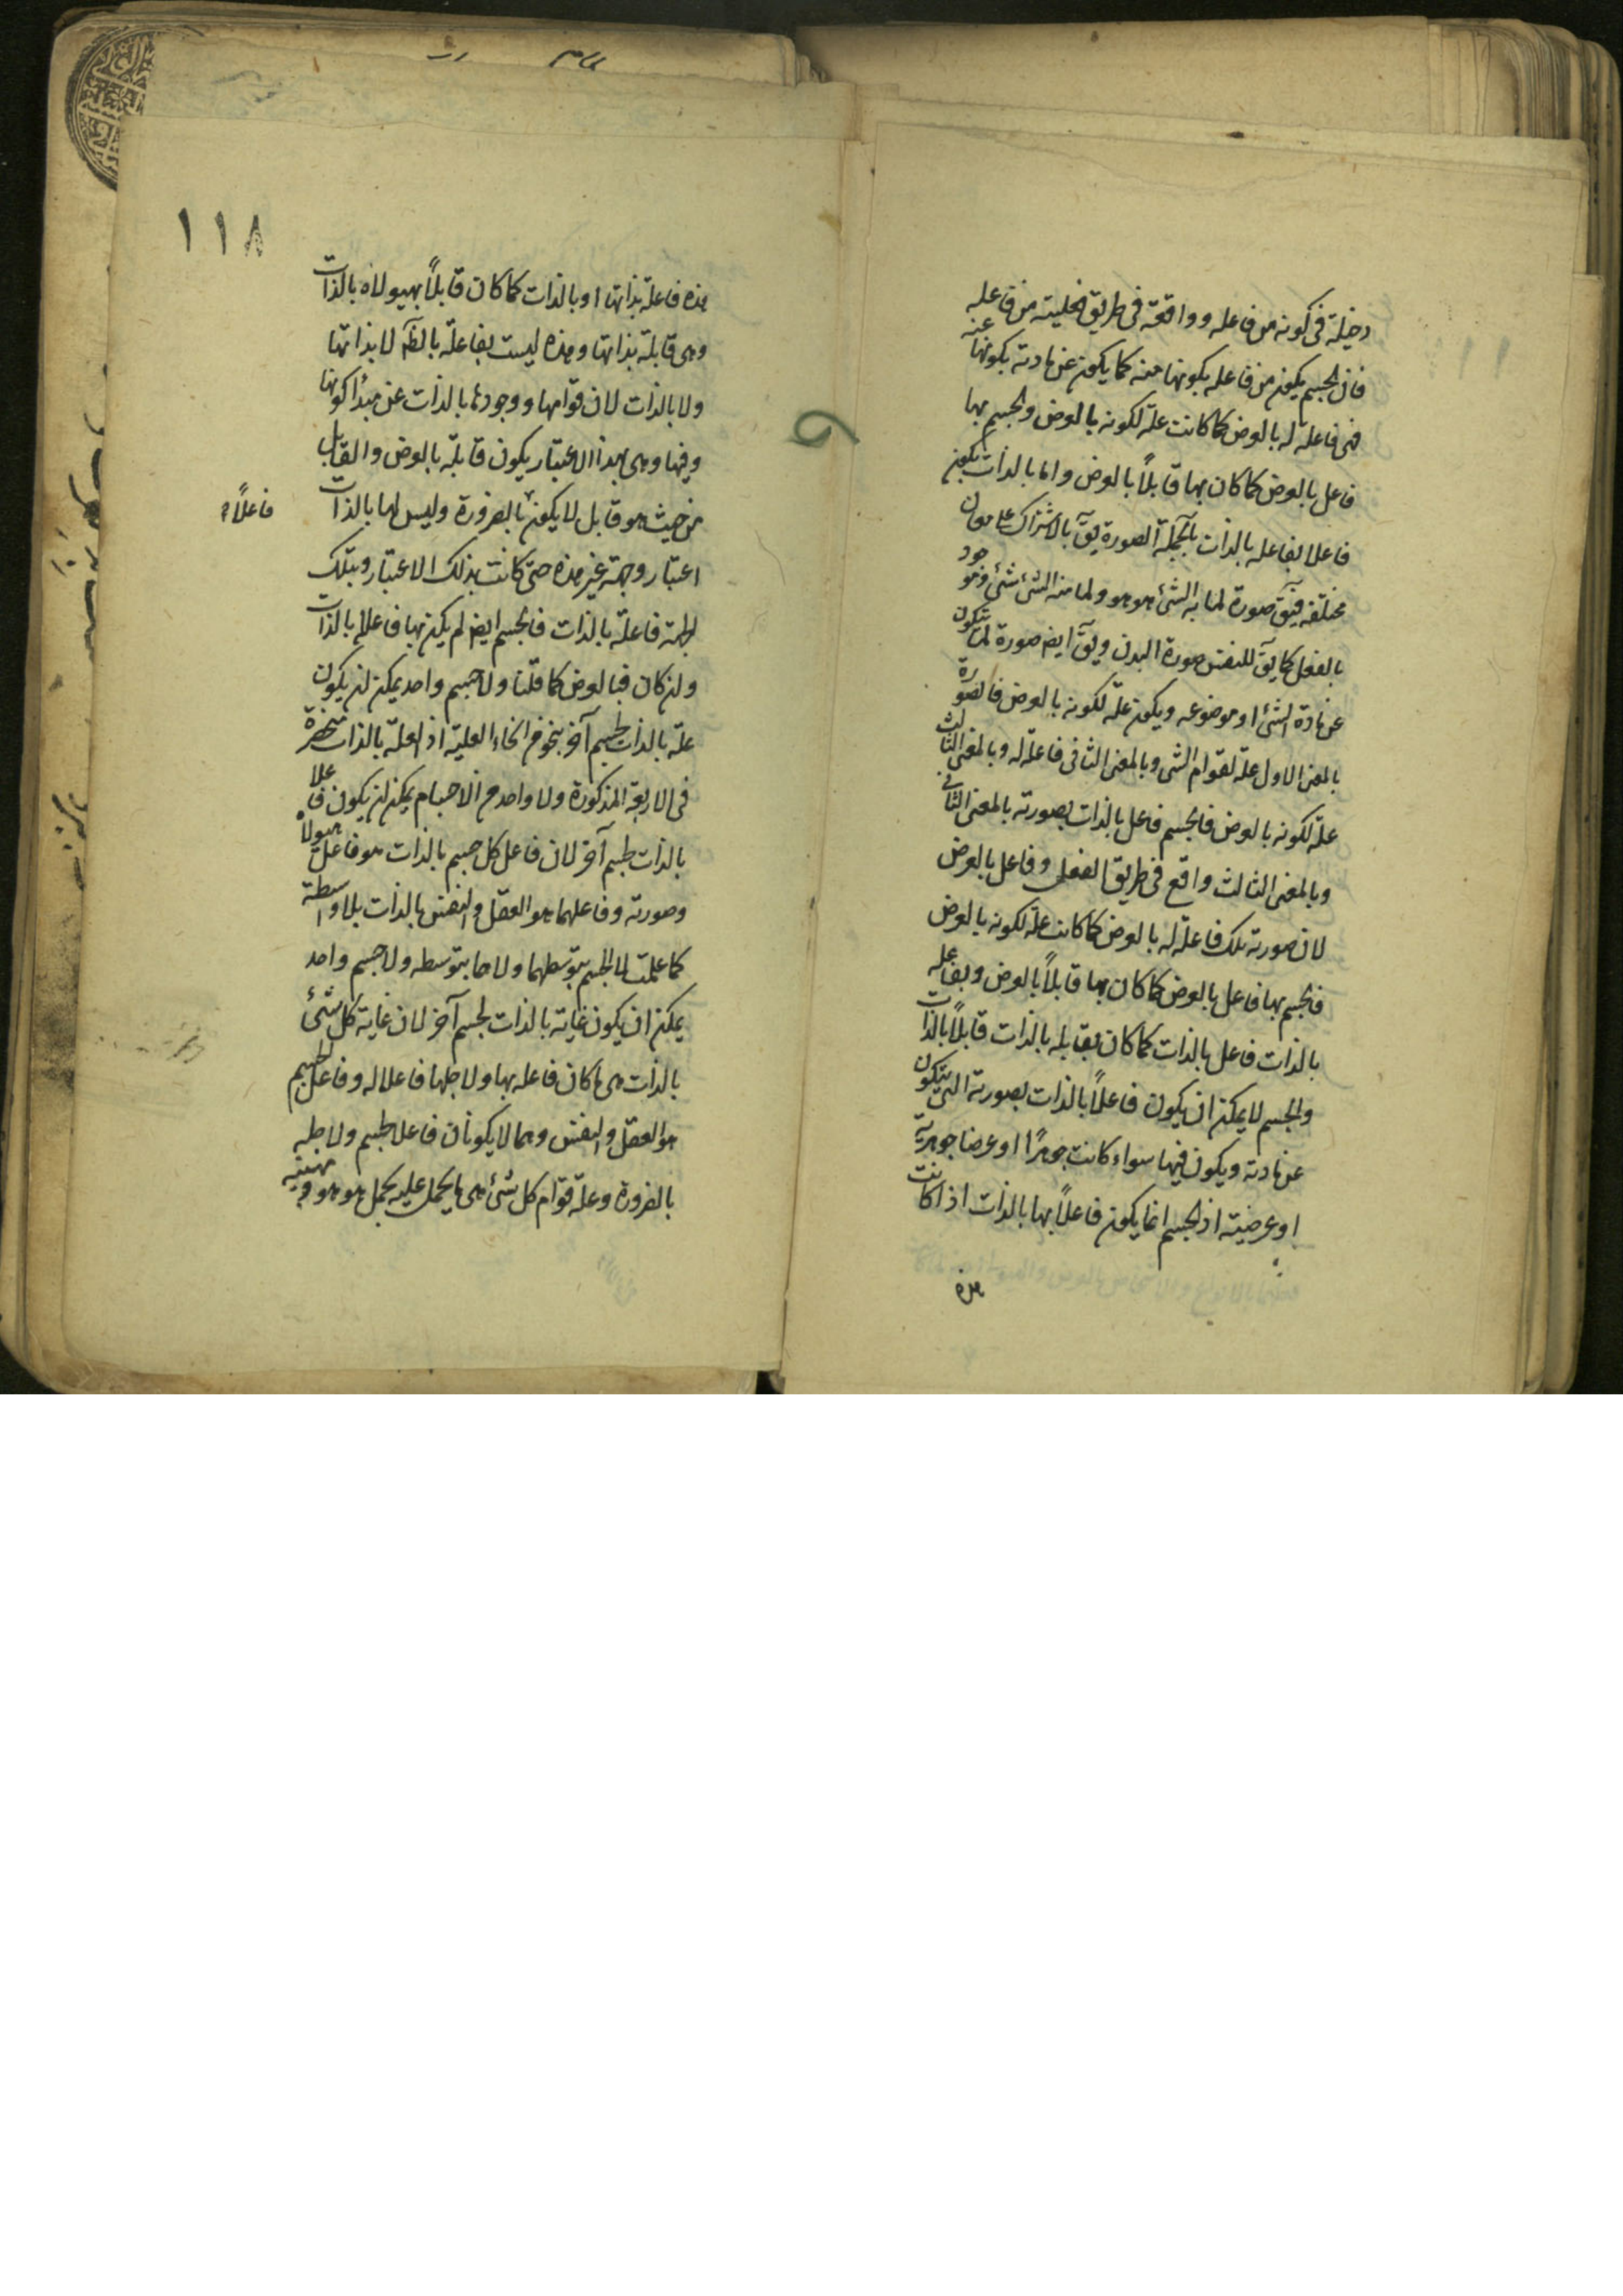 دخيلة فى كونه من فاعله وواقعة فى طريق فعليته من فاعله
فان الجسم يكون من فاعله بكونها منه كما يكون عن مادته بكونها عنه
فهى فاعلة له بالعرض كما كانت علة لكونه بالعرض والجسم بها
فاعل بالعرض كما كان بها قابلاً بالعرض واما بالذات يكون
فاعلا بفاعله بالذات بالجملة الصورة يقٓ بالاشتراك على معان
مختلفة فيقٓ صورة لما به الشئ هو هو ولما منه الشئ شئ وهو موجود
بالفعل كما يقٓ للنفس صورة البدن ويقٓ ايضٓ صورة لما يتكون
عن مادة الشئ او موضوعه ويكون علة لكونه بالعرض فالصورة
بالمعنى الاول علة لقوام الشئ وبالمعنى الثانى فاعلة له وبالمعنى الثالث
علة لكونه بالعرض فالجسم فاعل بالذات بصورته بالمعنى الثانى
وبالمعنى الثالث واقع فى طريق الفعل وفاعل بالعرض
لان صورته تلك فاعلة له بالعرض كما كانت علة لكونه بالعرض
فالجسم بها فاعل بالعرض كما كان بها قابلاً بالعرض وبفاعله
بالذات فاعل بالذات كما كان بقابله بالذات قابلاً بالذات
والجسم لا يمكن ان يكون فاعلاً بالذات بصورته التى يتكون
عن مادته ويكون فيها سواء كانت جوهرًا او عرضا جوهرية
او عرضية اذ الجسم انما يكون فاعلاً بها بالذات اذا كانت
هذه
١١٨
هذه فاعلة بذاتها او بالذات كما كان قابلاً بهيولاه بالذات
وهى قابلة بذاتها وهذه ليست بفاعلة بالذآ لا بذاتها
ولا بالذات لان قوامها ووجودها بالذات عن مبدأ كونها
وفيها وهى بهذا الاعتبار يكون قابلة بالعرض والقابل
من حيث هو قابل لا يكون بالضرورة وليس لها بالذات
فاعلاً
اعتبار وجهة غير هذه حتى كانت بذلك الاعتبار وبتلك
الجهة فاعلة بالذات فالجسم ايضٓ لم يكن بها فاعلا بالذات
وان كان فبالعرض كما قلنا ولا جسم واحد يمكن ان يكون
علة بالذات لجسم آخر بنحو من انحاء العلية اذ العلة بالذات منحصرة
فى الاربعة المذكورة ولا واحد من الاجسام يمكن ان يكون فاعلا
بالذات لجسم آخر لان فاعل كل جسم بالذات هو فاعل هيولاه
وصورته وفاعلهما هو العقل والنفس بالذات بلا واسطة
كما علمت لا الجسم بتوسطهما ولا هما بتوسطه ولا جسم واحد
يمكن ان يكون غاية بالذات لجسم آخر لان غاية كل شئ
بالذات هى ما كان فاعله بها ولاجلها فاعلا له وفاعل الجسم
هو العقل والنفس وهما لا يكونان فاعلا لجسم ولاجله
بالضرورة وعلة قوام كل شئ هى ما يحمل عليه بحمل هو هو